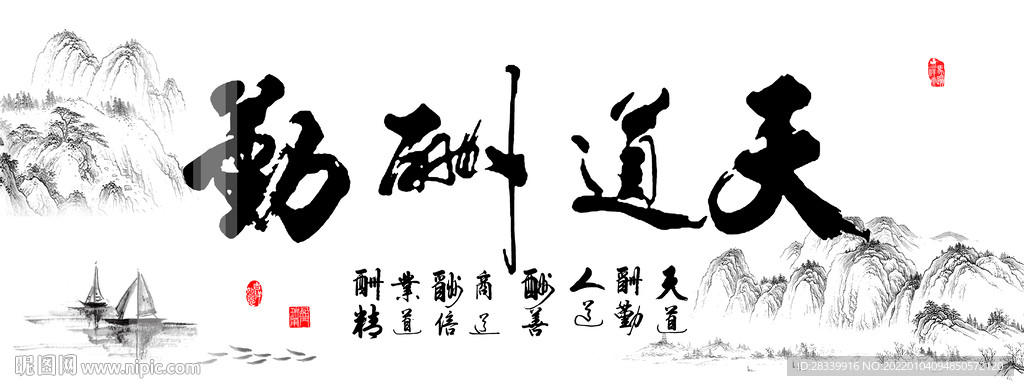 天道酬勤
天道
酬勤
人道
酬善
商道
酬信
業道
酬精
昵图网 www.nipic.com
ID:28339916